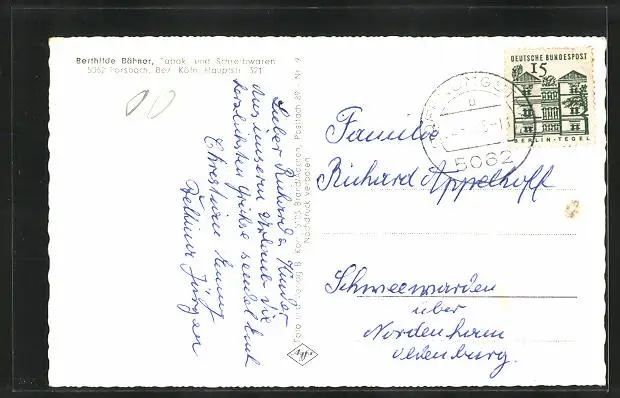 Berthilde Bähner, Tabak- und Schreibwaren
5062 Forsbach, Bez. Köln, Hauptstr. 321
Lieber Richard u. Kinder
Aus unserem Urlaub die
herzlichsten Grüße sendet Euch
Christian
Bettina Jürgen
Foto und Verlag B. Korr, 5113 Postfach 89, Nr. 9
Nachdruck verboten
DEUTSCHE BUNDESPOST
15
BERLIN-TEGEL
5062
Familie
Richard Appelhoff
Schweewarden
über
Nordenham
Oldenburg.